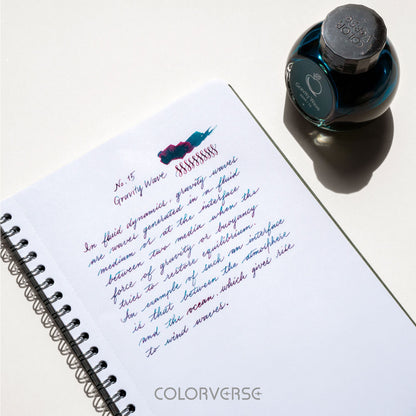 COLOR
VERSE
Gravity Wave
No. 15
Gravity Wave
In fluid dynamics, gravity waves
are waves generated in a fluid
medium or at the interface
between two media when the
force of gravity or buoyancy
tries to restore equilibrium.
An example of such an interface
is that between the atmosphere
and the ocean, which gives rise
to wind waves.
COLORVERSE